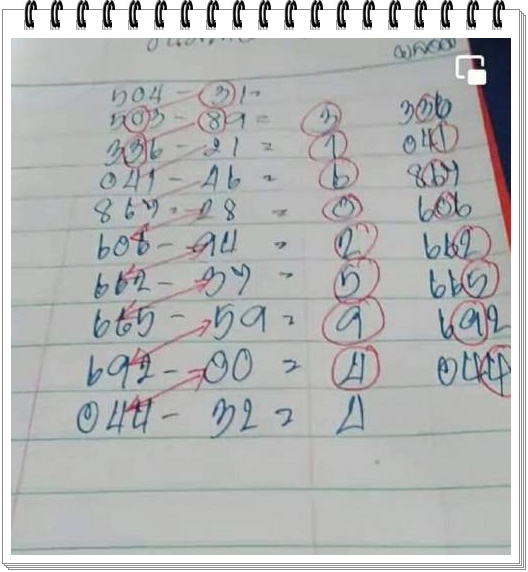 504 - 31 -
503 - 89 = 3 336
336 - 21 = 1 041
041 - 46 = 6 867
867 - 28 = 0 606
606 - 94 = 2 662
662 - 37 = 5 665
665 - 59 = 9 692
692 - 00 = 4 044
044 - 32 = 4